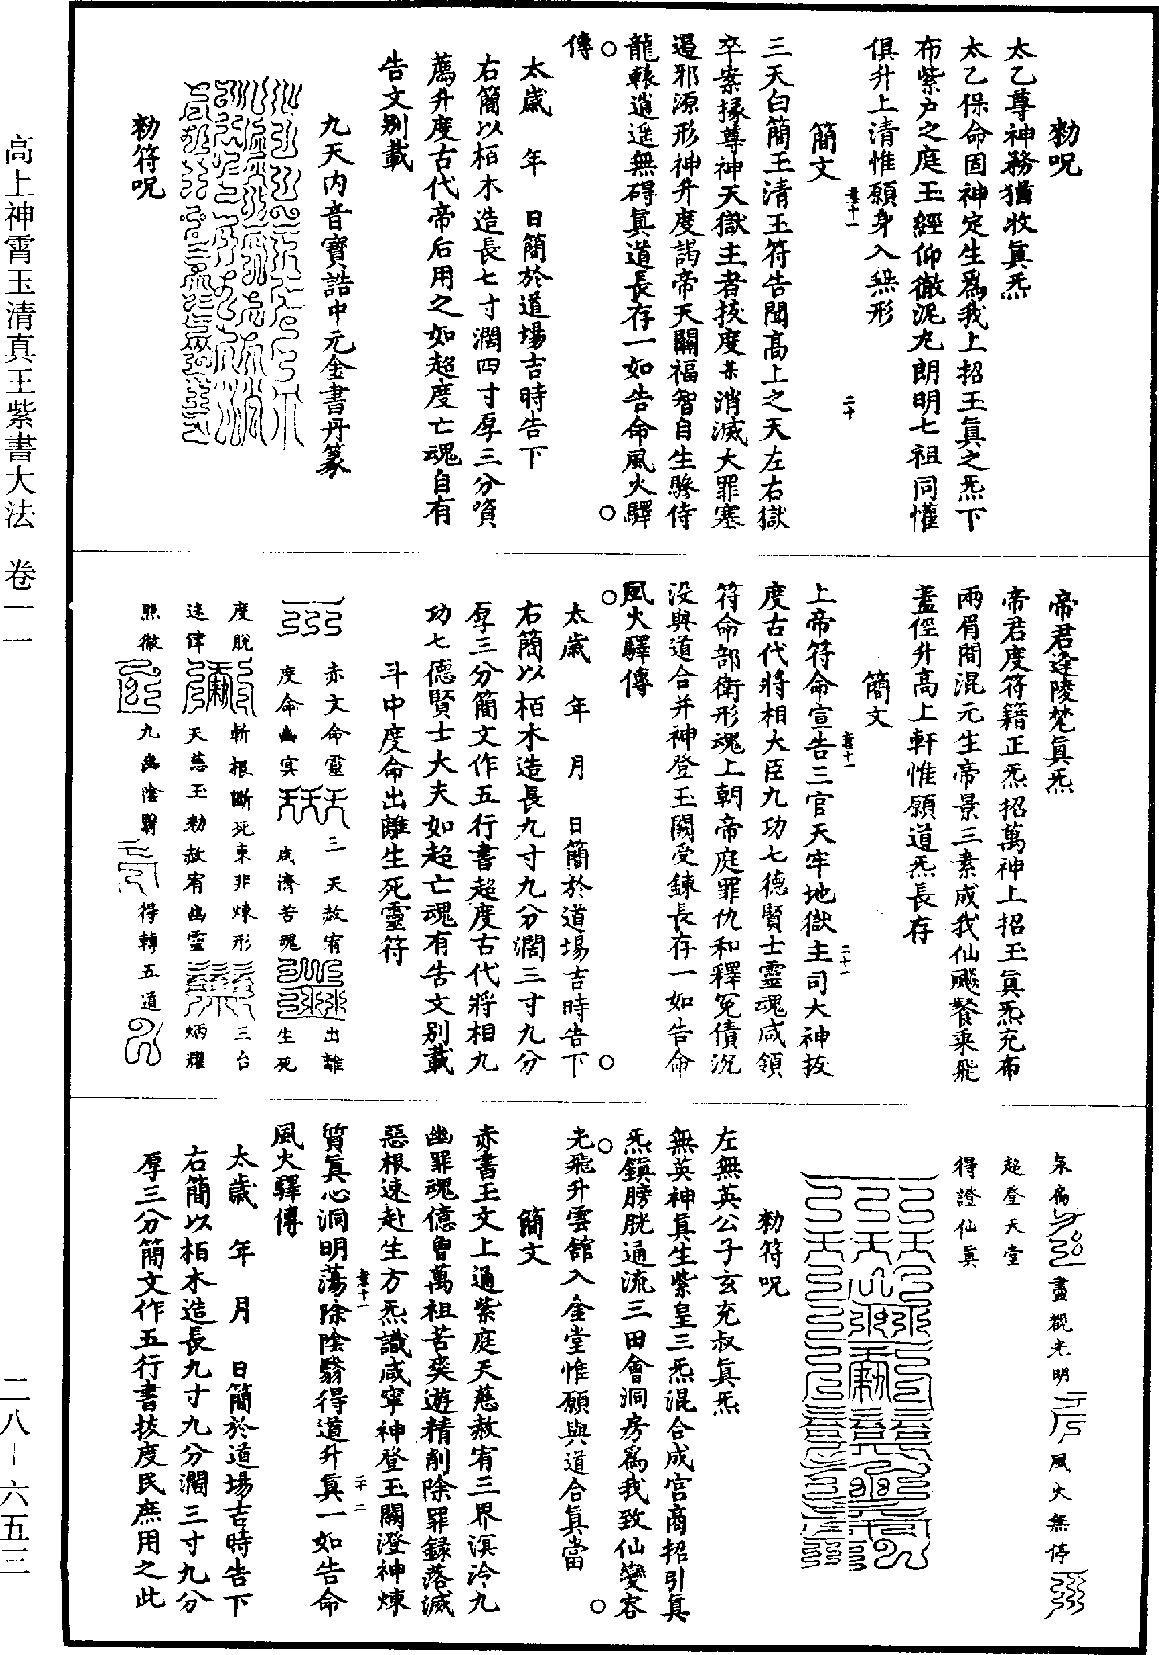 勑呪
太乙尊神務猶收眞炁
太乙保命固神定生爲我上招玉眞之炁下
布紫户之庭玉經仰徹泥丸朗明七祖同懽
俱升上清惟願身入無形
簡文
三天白簡玉清玉符告聞高上之天左右獄
卒案掾尊神天獄主者拔度某消滅大罪塞
遏邪源形神升度謁帝天關福智自生驂侍
龍轅逍遥無碍眞道長存一如告命風火驛
傳
太歲 年 日簡於道場吉時告下
右簡以栢木造長七寸濶四寸厚三分資
薦升度古代帝后用之如超度亡魂自有
告文别載
九天内音寶誥中元金書丹篆
勑符呪
帝君逢陵梵眞炁
帝君度符籍正炁招萬神上招玉眞炁充布
兩眉間混元生帝景三素成我仙飈餐乘飛
蓋徑升高上軒惟願道炁長存
簡文
上帝符命宣告三官天牢地獄主司大神拔
度古代將相大臣九功七德賢士靈魂咸領
符命部衛形魂上朝帝庭罪仇和釋寃債沉
没與道合并神登玉闕受鍊長存一如告命
風火驛傳
太歲 年 月 日簡於道場吉時告下
右簡以栢木造長九寸九分濶三寸九分
厚三分簡文作五行書超度古代將相九
功七德賢士大夫如超亡魂有告文别載
斗中度命出離生死靈符
赤文命靈 三天赦宥 出離
度命幽冥 成濟苦魂 生死
度脱 斬根斷死束非煉形 三台
逮律 天慈玉勑赦宥幽靈 炳耀
照徹 九幽陰翳 得轉五道
盡覩光明 風火無停
超登天堂
得證仙眞
勑符呪
左無英公子玄充叔眞炁
無英神眞生紫皇三炁混合成宫商招引眞
炁鎮膀胱通流三田會洞房爲我致仙變容
光飛升雲舘入金堂惟願與道合眞當
簡文
赤書玉文上通紫庭天慈赦宥三界溟泠九
幽罪魂億曾萬祖苦爽遊精削除罪録落滅
惡根速赴生方炁識咸寧神登玉關澄神煉
質眞心洞明蕩除陰翳得道升眞一如告命
風火驛傳
太歲 年 月 日簡於道場吉時告下
右簡以栢木造長九寸九分濶三寸九分
厚三分簡文作五行書拔度民庶用之此
高上神霄玉清真王紫書大法 卷一一
二八-六五三